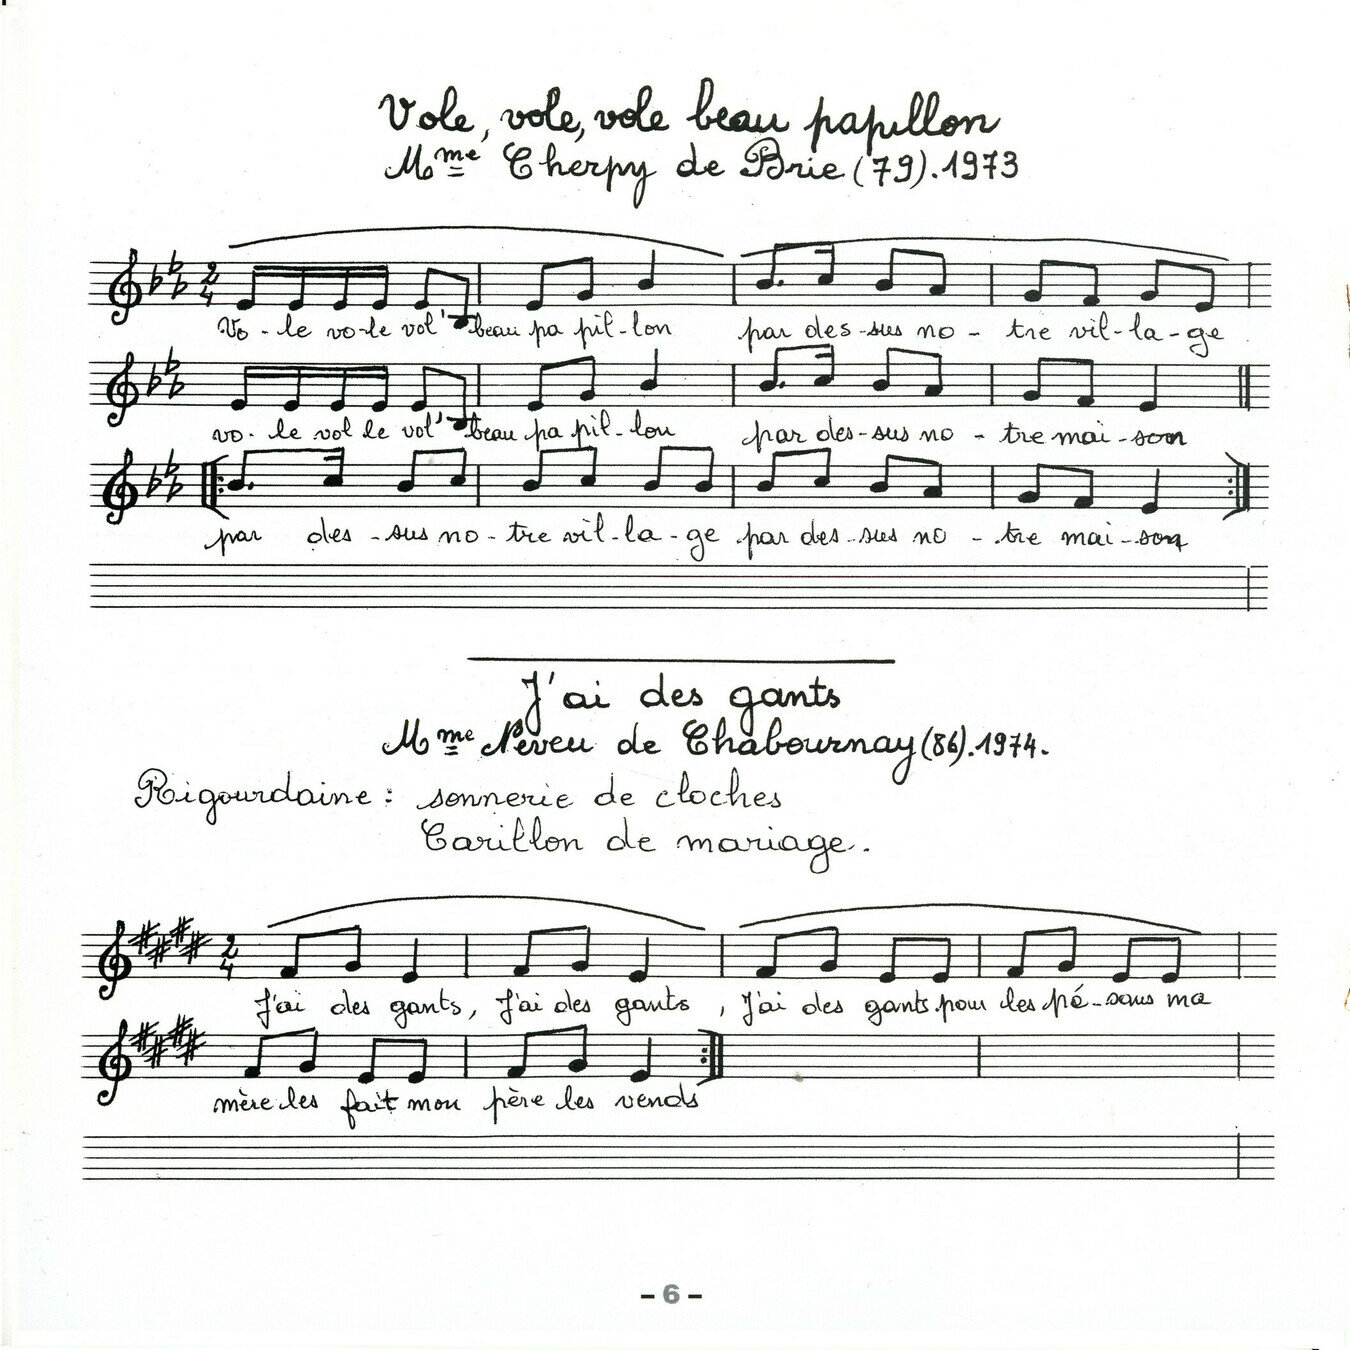 Vole, vole, vole beau papillon
Mme Cherpy de Brie (79). 1973
2 4
Vo - le vo-le vol' beau pa pil-lon par des-sus no - tre vil-la-ge
vo - le vol le vol' beau pa pil-lon par des-sus no - tre mai-son
par des-sus no-tre vil-la-ge par des-sus no - tre mai-son
J'ai des gants
Mme Neveu de Chabournay (86). 1974.
Rigourdaine : sonnerie de cloches
Carillon de mariage.
2 4
J'ai des gants, J'ai des gants, J'ai des gants pour les pé-sans ma
mère les fait mon père les vends
- 6 -